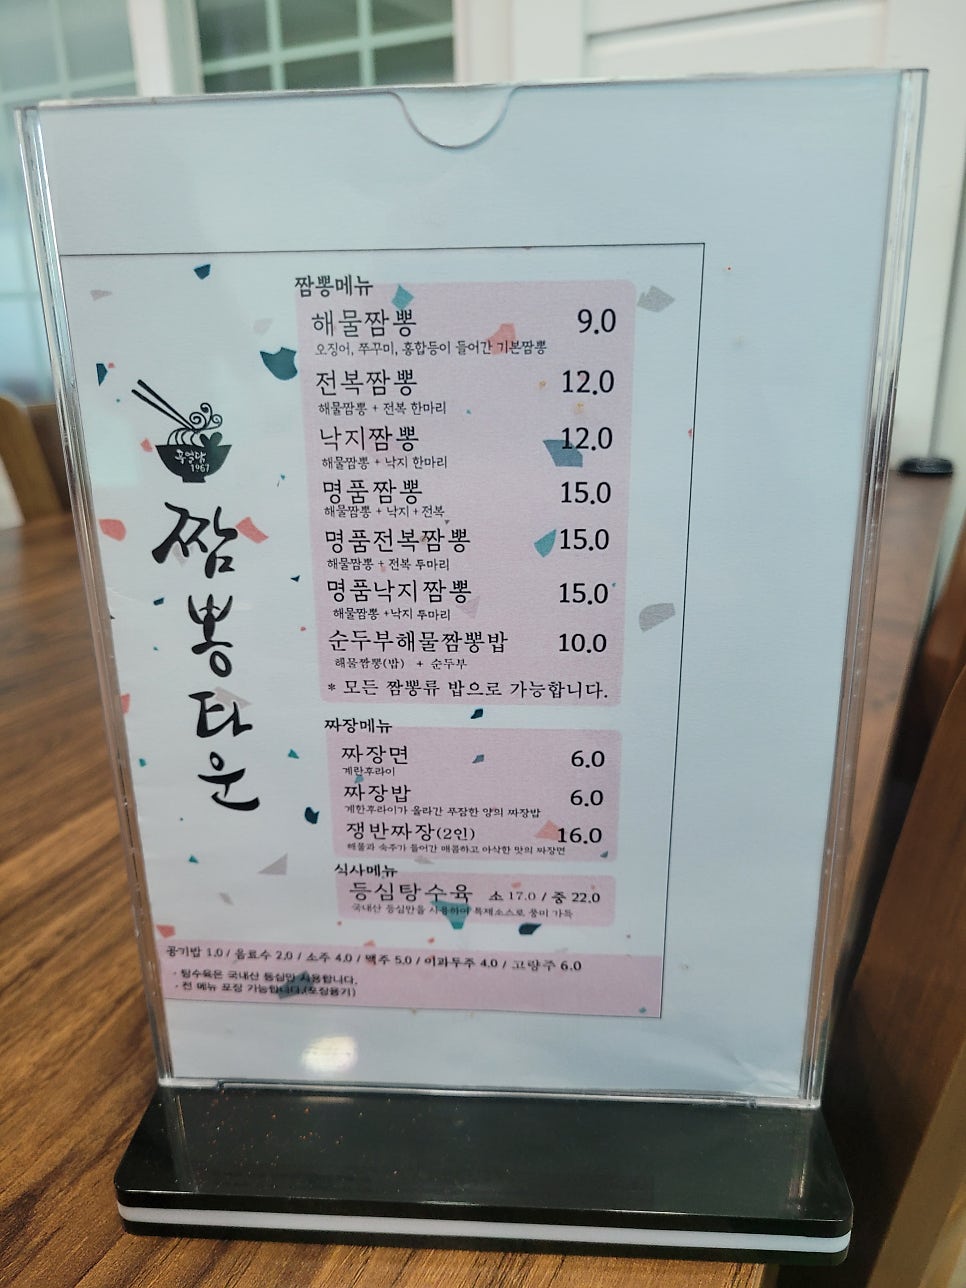 짬뽕타운
1967
짬뽕메뉴
해물짬뽕 9.0
오징어, 쭈꾸미, 홍합등이 들어간 기본짬뽕
전복짬뽕 12.0
해물짬뽕 + 전복 한마리
낙지짬뽕 12.0
해물짬뽕 + 낙지 한마리
명품짬뽕 15.0
해물짬뽕 + 낙지 + 전복
명품전복짬뽕 15.0
해물짬뽕 + 전복 두마리
명품낙지짬뽕 15.0
해물짬뽕 +낙지 두마리
순두부해물짬뽕밥 10.0
해물짬뽕(밥) + 순두부
* 모든 짬뽕류 밥으로 가능합니다.
짜장메뉴
짜장면 6.0
계란후라이
짜장밥 6.0
계란후라이가 올라간 푸짐한 양의 짜장밥
쟁반짜장(2인) 16.0
해물과 숙주가 들어간 매콤하고 아삭한 맛의 짜장면
식사메뉴
등심탕수육 소 17.0 / 중 22.0
국내산 등심만을 사용하여 특제소스로 풍미 가득
공기밥 1.0 / 음료수 2.0 / 소주 4.0 / 맥주 5.0 / 이과두주 4.0 / 고량주 6.0
· 탕수육은 국내산 등심만 사용합니다.
· 전 메뉴 포장 가능합니다.(포장용기)